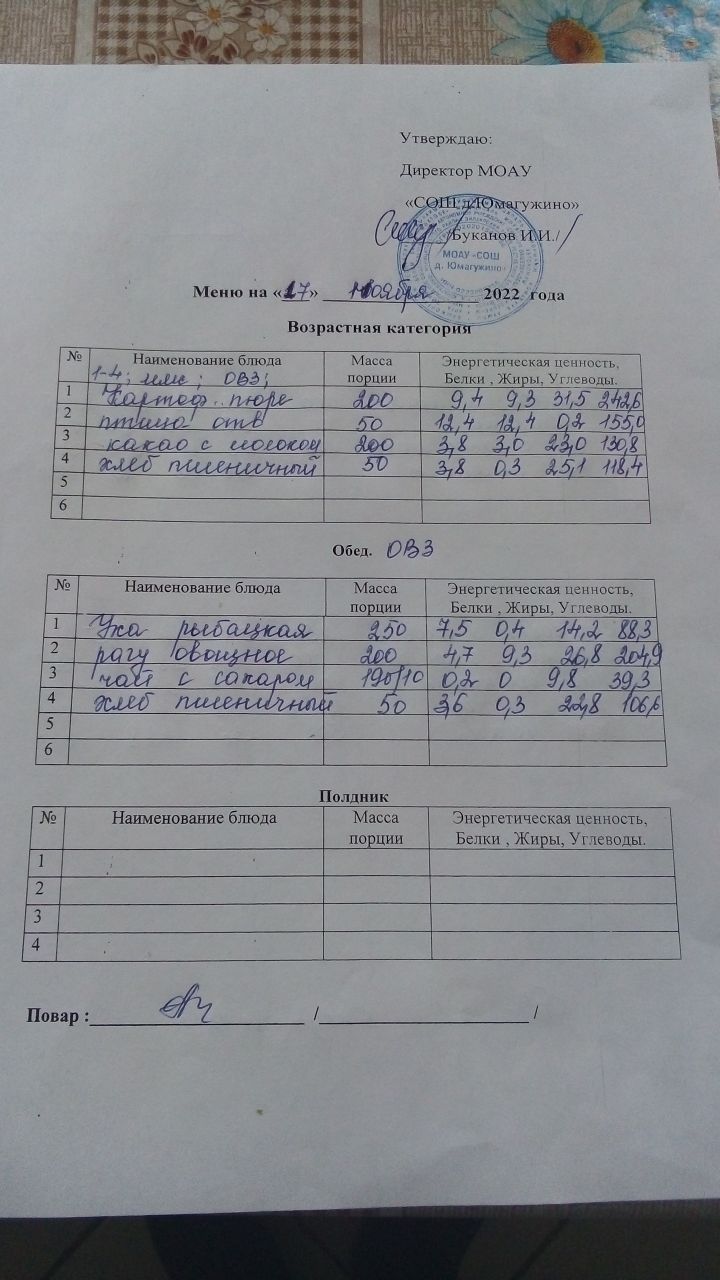 Утверждаю:
Директор МОАУ
«СОШ д.Юмагужино»
/Буканов И.И./
МОАУ «СОШ
д. Юмагужино»
Меню на «17» ноября 2022 года
Возрастная категория
№ Наименование блюда Масса порции Энергетическая ценность, Белки , Жиры, Углеводы.
1-4; ОВЗ;
1 Картоф. пюре 200 9,4 9,3 31,5 242,6
2 птица отв 50 12,4 12,4 0,2 155,0
3 какао с молоком 200 3,8 3,0 23,0 130,8
4 хлеб пшеничный 50 3,8 0,3 25,1 118,4
5
6
Обед. ОВЗ
№ Наименование блюда Масса порции Энергетическая ценность, Белки , Жиры, Углеводы.
1 Уха рыбацкая 250 7,5 0,4 14,2 88,3
2 рагу овощное 200 4,7 9,3 26,8 204,9
3 чай с сахаром 190/10 0,2 0 9,8 39,3
4 хлеб пшеничный 50 3,6 0,3 22,8 106,6
5
6
Полдник
№ Наименование блюда Масса порции Энергетическая ценность, Белки , Жиры, Углеводы.
1
2
3
4
Повар : / /